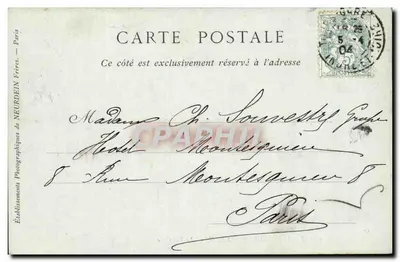 CARTE POSTALE
Ce côté est exclusivement réservé à l'adresse
Établissements Photographiques de NEURDEIN Frères. — Paris
5 -4
04
Madame Ch. Souvestre
Hotel Montesquieu
8 Rue Montesquieu 8
Paris
CPAPHIL